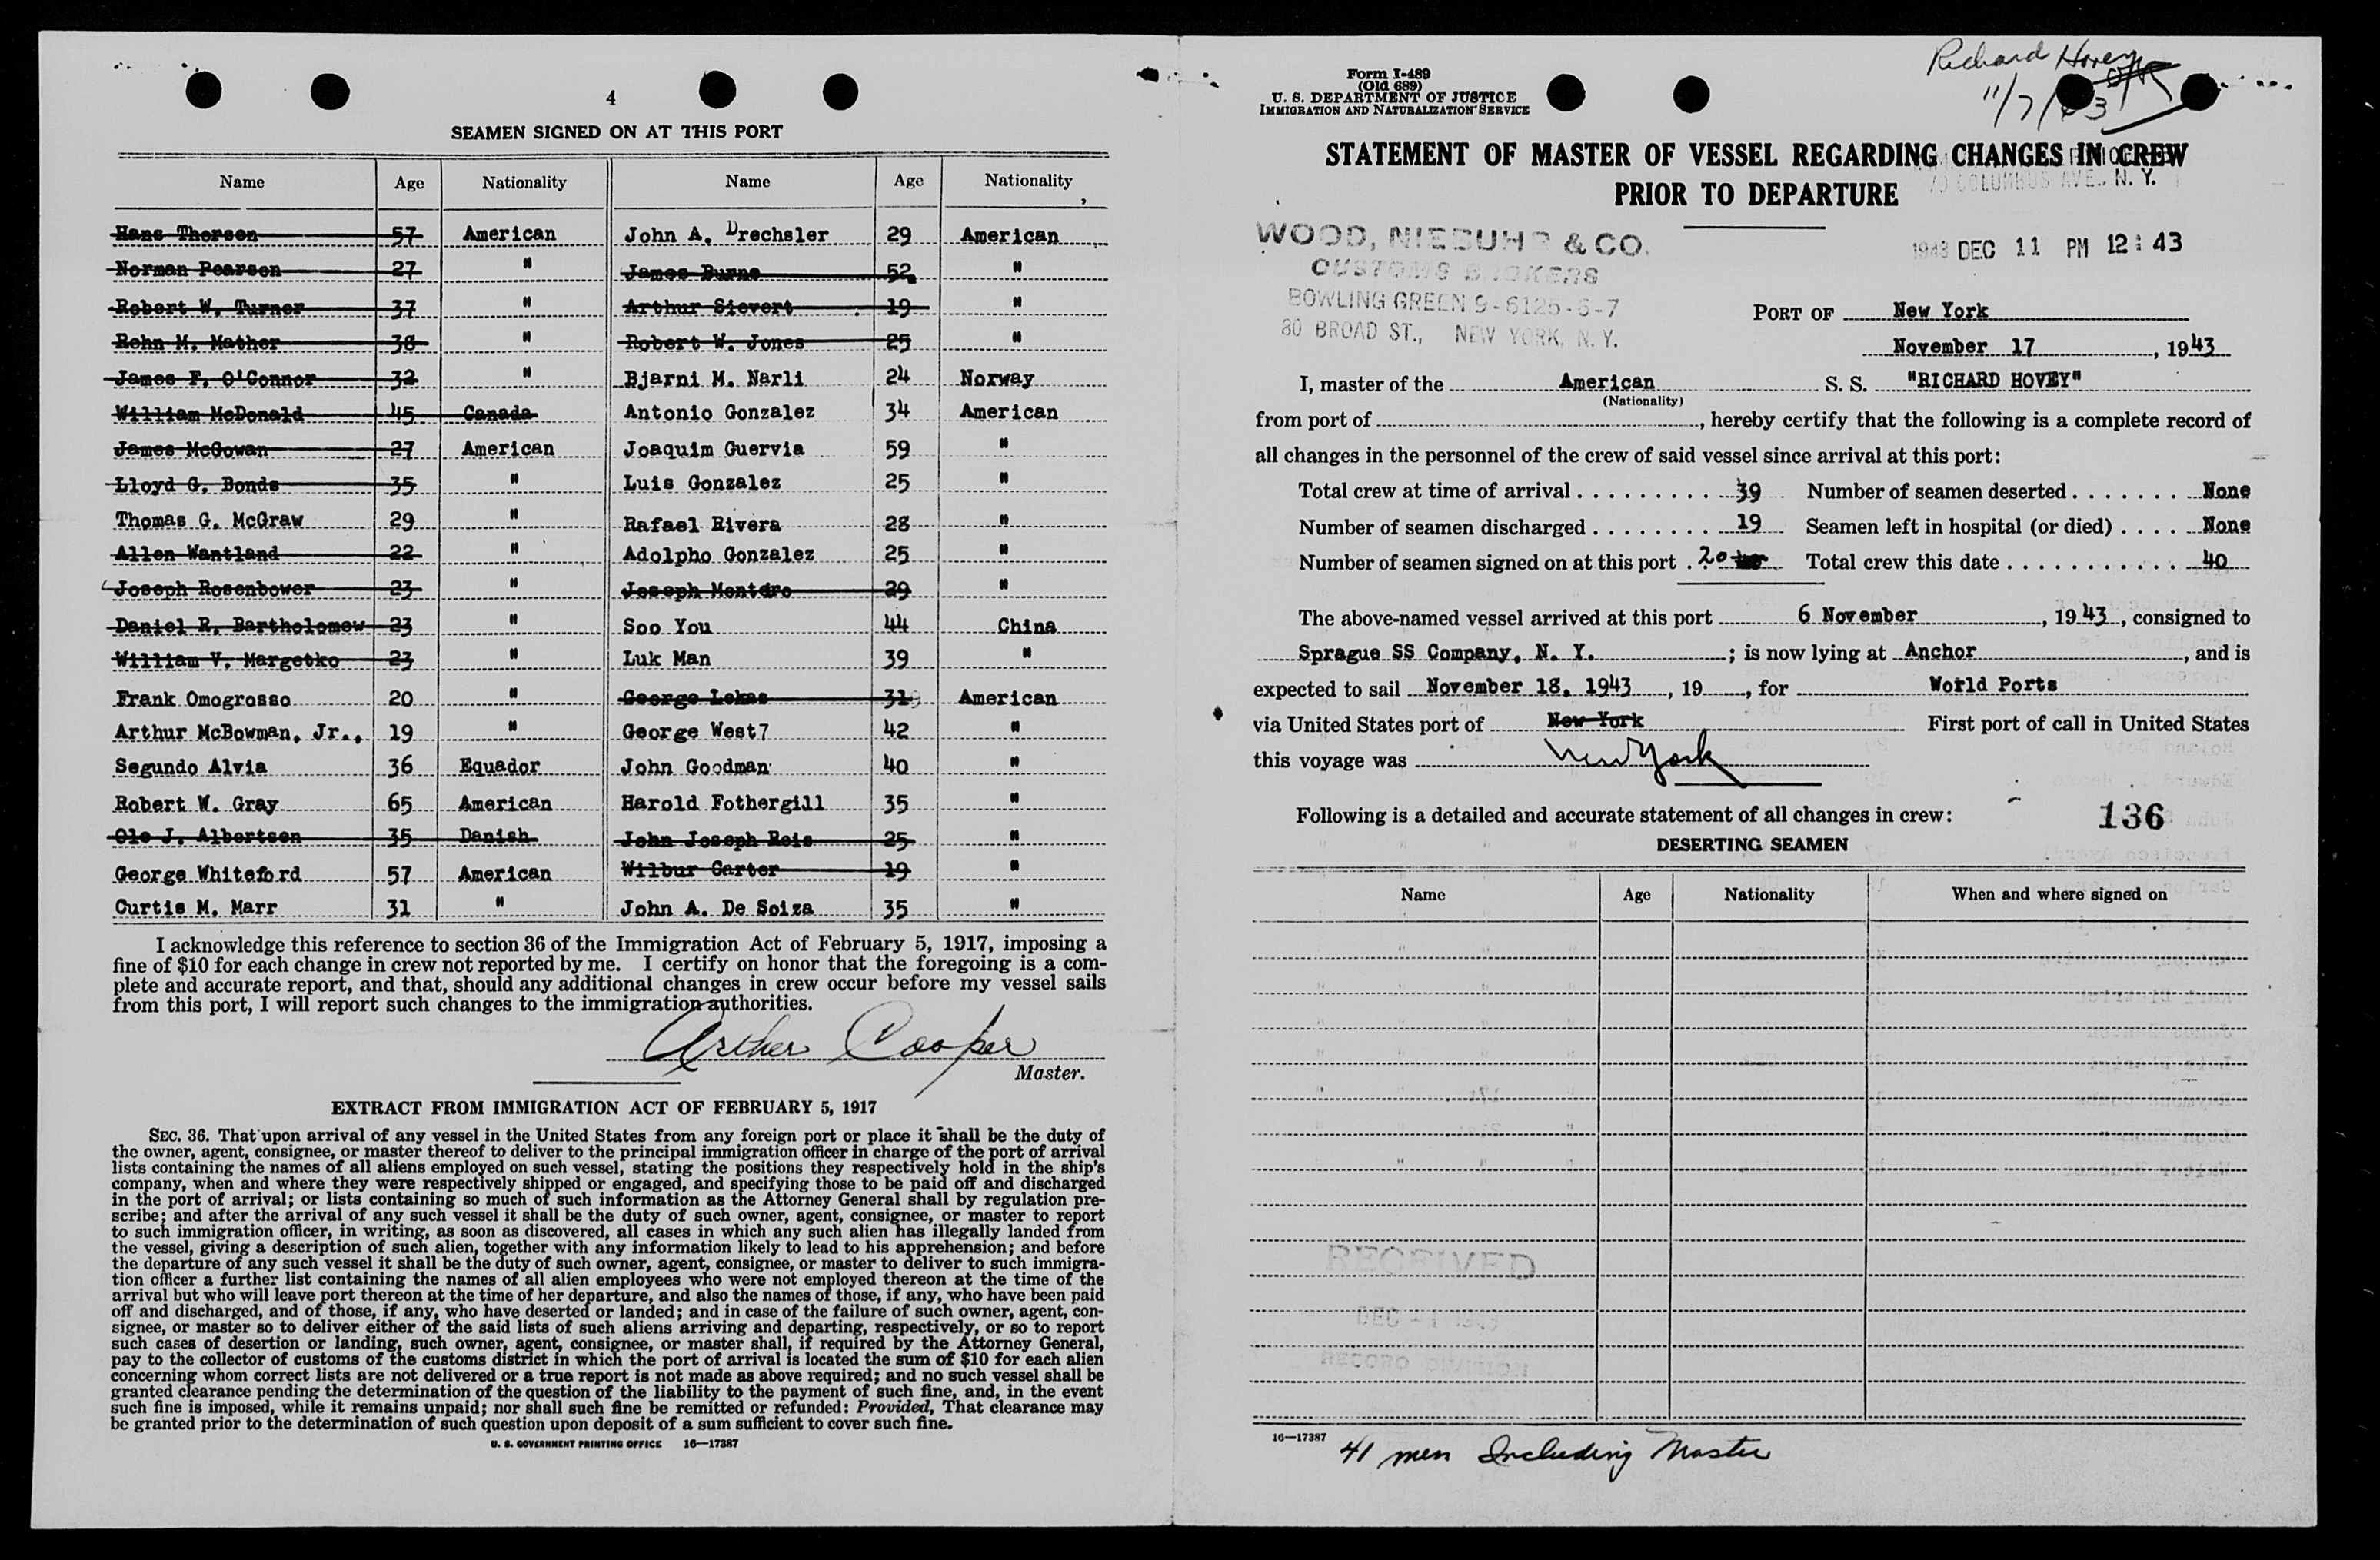 4
SEAMEN SIGNED ON AT THIS PORT
Name Age Nationality Name Age Nationality
Hans Thorsen 57 American John A. Drechsler 29 American
Norman Pearson 27 " James Burns 52 "
Robert W. Turner 37 " Arthur Sievert 19 "
Rohn M. Mather 38 " Robert W. Jones 25 "
James F. O'Connor 32 " Bjarni M. Narli 24 Norway
William McDonald 45 Canada Antonio Gonzalez 34 American
James McGowan 27 American Joaquim Guervia 59 "
Lloyd G. Bonds 35 " Luis Gonzalez 25 "
Thomas G. McGraw 29 " Rafael Rivera 28 "
Allen Wantland 22 " Adolpho Gonzalez 25 "
Joseph Rosenbower 23 " Joseph Montero 29 "
Daniel R. Bartholomew 23 " Soo You 44 China
William V. Margetko 23 " Luk Man 39 "
Frank Omogrosso 20 " George Lekas 31 American
Arthur McBowman, Jr., 19 " George West7 42 "
Segundo Alvia 36 Equador John Goodman 40 "
Robert W. Gray 65 American Harold Fothergill 35 "
Ole J. Albertsen 35 Danish John Joseph Reis 25 "
George Whiteford 57 American Wilbur Carter 19 "
Curtis M. Marr 31 " John A. De Soiza 35 "
I acknowledge this reference to section 36 of the Immigration Act of February 5, 1917, imposing a
fine of $10 for each change in crew not reported by me. I certify on honor that the foregoing is a com-
plete and accurate report, and that, should any additional changes in crew occur before my vessel sails
from this port, I will report such changes to the immigration authorities.
Arther Cooper
Master.
EXTRACT FROM IMMIGRATION ACT OF FEBRUARY 5, 1917
SEC. 36. That upon arrival of any vessel in the United States from any foreign port or place it shall be the duty of
the owner, agent, consignee, or master thereof to deliver to the principal immigration officer in charge of the port of arrival
lists containing the names of all aliens employed on such vessel, stating the positions they respectively hold in the ship's
company, when and where they were respectively shipped or engaged, and specifying those to be paid off and discharged
in the port of arrival; or lists containing so much of such information as the Attorney General shall by regulation pre-
scribe; and after the arrival of any such vessel it shall be the duty of such owner, agent, consignee, or master to report
to such immigration officer, in writing, as soon as discovered, all cases in which any such alien has illegally landed from
the vessel, giving a description of such alien, together with any information likely to lead to his apprehension; and before
the departure of any such vessel it shall be the duty of such owner, agent, consignee, or master to deliver to such immigra-
tion officer a further list containing the names of all alien employees who were not employed thereon at the time of the
arrival but who will leave port thereon at the time of her departure, and also the names of those, if any, who have been paid
off and discharged, and of those, if any, who have deserted or landed; and in case of the failure of such owner, agent, con-
signee, or master so to deliver either of the said lists of such aliens arriving and departing, respectively, or so to report
such cases of desertion or landing, such owner, agent, consignee, or master shall, if required by the Attorney General,
pay to the collector of customs of the customs district in which the port of arrival is located the sum of $10 for each alien
concerning whom correct lists are not delivered or a true report is not made as above required; and no such vessel shall be
granted clearance pending the determination of the question of the liability to the payment of such fine, and, in the event
such fine is imposed, while it remains unpaid; nor shall such fine be remitted or refunded: Provided, That clearance may
be granted prior to the determination of such question upon deposit of a sum sufficient to cover such fine.
U. S. GOVERNMENT PRINTING OFFICE 16—17387
Form I-489
(Old 689)
U. S. DEPARTMENT OF JUSTICE
IMMIGRATION AND NATURALIZATION SERVICE
Richard Hovey
11/7/43
STATEMENT OF MASTER OF VESSEL REGARDING CHANGES IN CREW
PRIOR TO DEPARTURE
70 COLUMBUS AVE., N. Y.
WOOD, NIEBUHR & CO.
CUSTOMS BROKERS
BOWLING GREEN 9-6125-6-7
80 BROAD ST., NEW YORK, N. Y.
1943 DEC 11 PM 12:43
PORT OF New York
November 17, 1943
I, master of the American S. S. "RICHARD HOVEY"
(Nationality)
from port of , hereby certify that the following is a complete record of
all changes in the personnel of the crew of said vessel since arrival at this port:
Total crew at time of arrival 39 Number of seamen deserted None
Number of seamen discharged 19 Seamen left in hospital (or died) None
Number of seamen signed on at this port 20 Total crew this date 40
The above-named vessel arrived at this port 6 November, 1943, consigned to
Sprague SS Company, N. Y. ; is now lying at Anchor, and is
expected to sail November 18, 1943, 19 , for World Ports
via United States port of New York First port of call in United States
this voyage was New York
Following is a detailed and accurate statement of all changes in crew: 136
DESERTING SEAMEN
Name Age Nationality When and where signed on
RECEIVED
DEC 11
RECORD DIVISION
16—17387
41 men Including Master